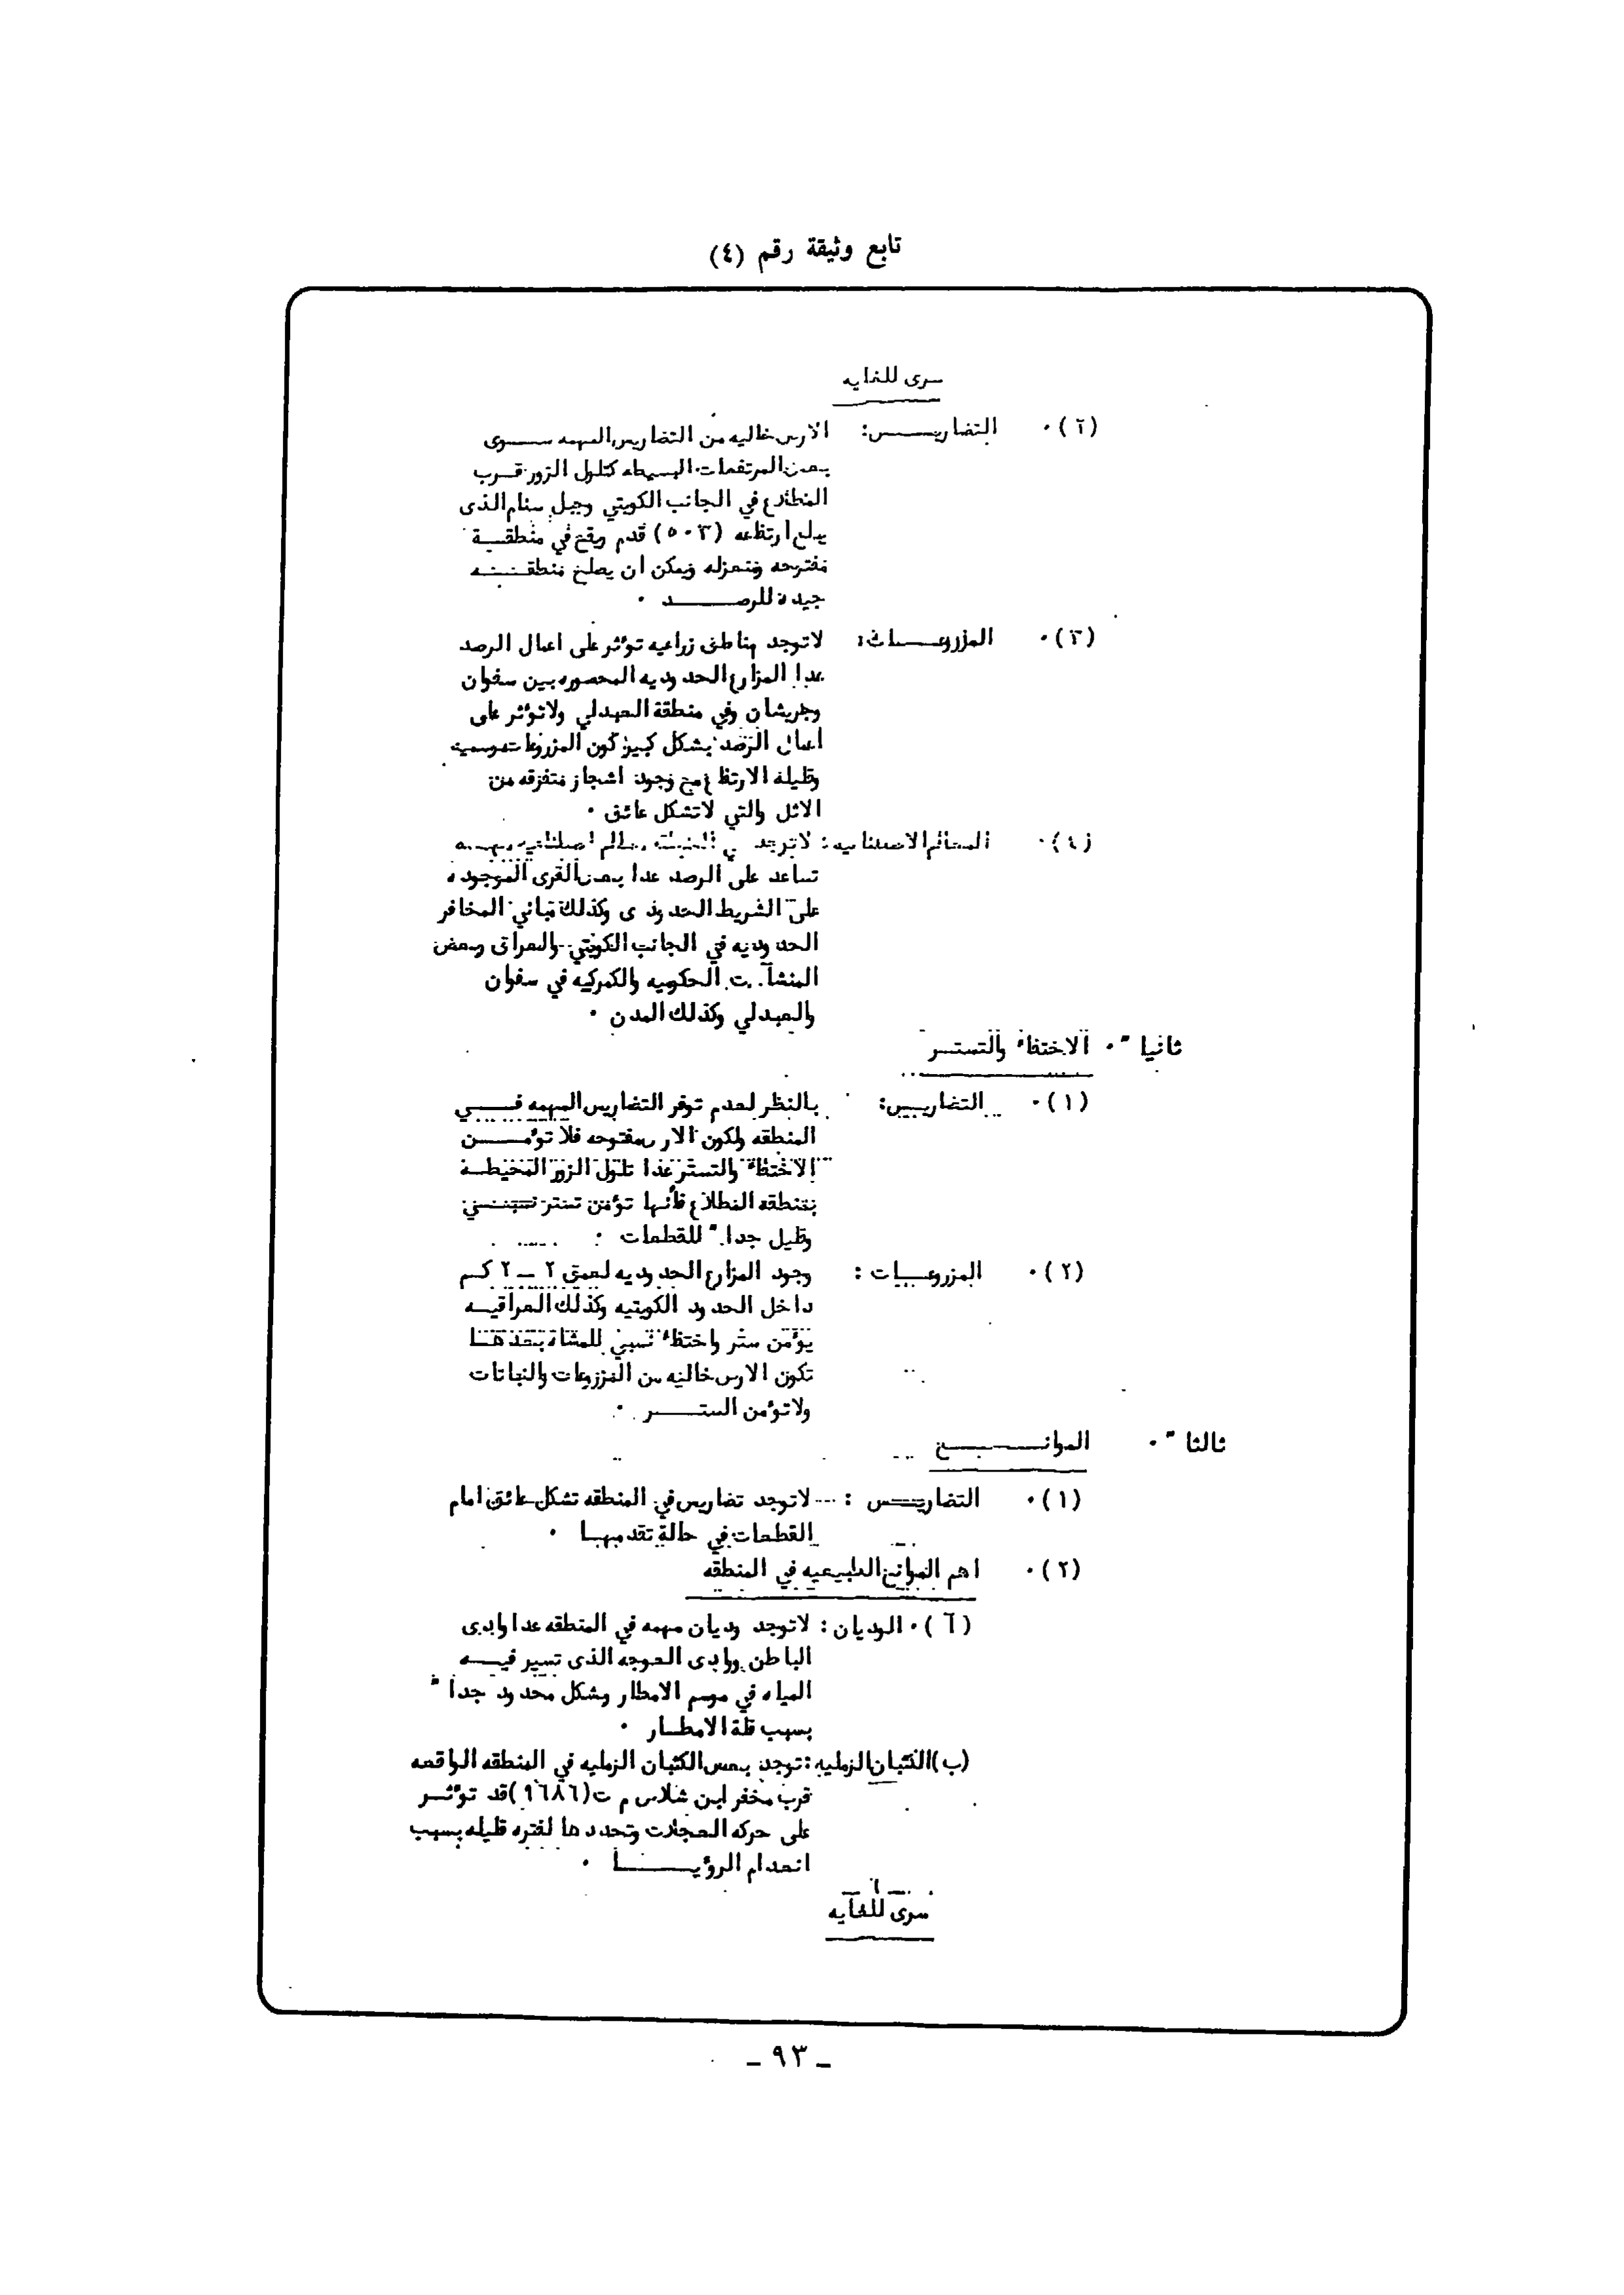 تابع وثيقة رقم (٤)
سرى للغايه
(٢)٠ التضاريــــس: الارض خاليه من التضاريس المهمه ســـوى
بعض المرتفعات البسيطه كتلول الزور قــرب
المطلاع في الجانب الكويتي وجبل سنام الذى
يبلغ ارتفاعه (٥٠٣) قدم ويقع في منطقــة
مفتوحه ومنعزله ويمكن ان يصلح منطقـــه
جيدة للرصــــــد ٠
(٣)٠ المزروعــــات: لاتوجد مناطق زراعيه تؤثر على اعمال الرصد
عدا المزارع الحدوديه المحصوره بين سفوان
وجريشان وفي منطقة العبدلي ولاتؤثر على
اعمال الرصد بشكل كبير كون المزروعات موسميه
وقليلة الارتفاع مع وجود اشجار متفرقه من
الاثل والتي لاتشكل عائق ٠
(٤)٠ المعالم الاصطناعيه: لاتوجد في المنطقه معالم اصطناعيه مهمــه
تساعد على الرصد عدا بعض القرى الموجوده
على الشريط الحدودى وكذلك مباني المخافر
الحدوديه في الجانب الكويتي والعراقى وبعض
المنشآت الحكوميه والكمركيه في سفوان
والعبدلي وكذلك المدن ٠
ثانيا"٠ الاختفاء والتستــر
(١)٠ التضاريــس: بالنظر لعدم توفر التضاريس المهمه فـــي
المنطقه ولكون الارض مفتوحه فلا تؤمــــن
الاختفاء والتستر عدا تلول الزور المحيطــة
بمنطقة المطلاع فأنها تؤمن تستر نســبــي
وقليل جدا" للقطعات ٠
(٢)٠ المزروعــات : وجود المزارع الحدوديه لعمق ٢ – ٢ كــم
داخل الحدود الكويتيه وكذلك العراقيــه
يؤمن ستر واختفاء نسبي للمشاة بعدهـــا
تكون الارض خاليه من المزروعات والنباتات
ولاتؤمن الستــــــر ٠
ثالثا"٠ الموانـــــــع
(١)٠ التضاريــــس : لاتوجد تضاريس في المنطقه تشكل عائق امام
القطعات في حالة تقدمهـا ٠
(٢)٠ اهم الموانع الطبيعيه في المنطقه
(أ)٠ الوديان: لاتوجد وديان مهمه في المنطقه عدا وادى
الباطن ووادى العوجه الذى تسير فيـــه
المياه في موسم الامطار وبشكل محدود جدا"
بسبب قلة الامطـار ٠
(ب) الكثبان الرمليه: توجد بعض الكثبان الرمليه في المنطقه الواقعه
قرب مخفر ابن شلاس م ت(٩٦٨٦) قد تؤثــر
على حركه العجلات وتحددها لفتره قليله بسبب
انعدام الرؤيــــــا ٠
سرى للغايه
ـ ٩٣ ـ